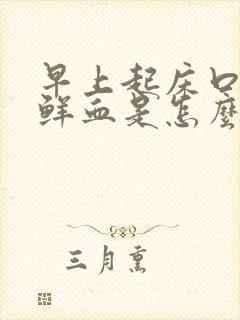 早上起床口
鲜血是怎麼
三月熏